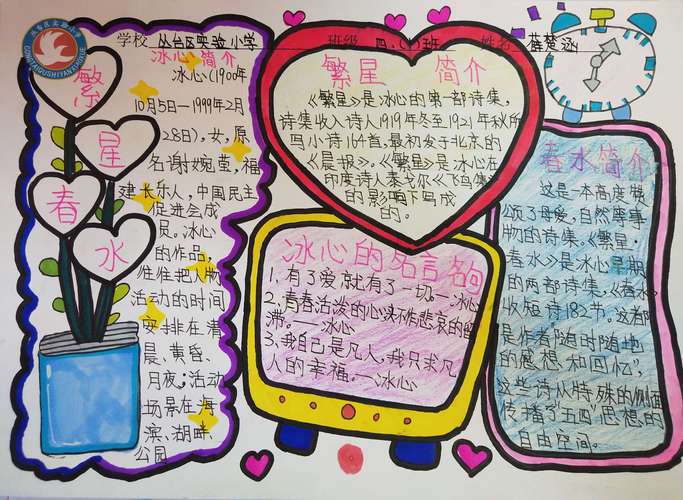 丛台区实验小学
CONGTAIQUSHIYANXIAOXUE
学校 丛台区实验小学 班级 四.(1)班 姓名 薛楚涵
繁
星
春
水
冰心简介
冰心(1900年
10月5日—1999年2月
28日),女,原
名谢婉莹,福
建长乐人,中国民主
促进会成
员。冰心
的作品,
往往把人物
活动的时间
安排在清
晨、黄昏、
月夜;活动
场景在海
滨、湖畔、
公园
繁星 简介
《繁星》是冰心的第一部诗集,
诗集收入诗人1919年冬至1921年秋所
写小诗164首,最初发于北京的
《晨报》。《繁星》是冰心在
印度诗人泰戈尔《飞鸟集》
的影响下写成
的。
冰心的名言名句
1.有了爱就有了一切。—冰心
2.青春活泼的心决不作悲哀的留
滞。——冰心
3.我自己是凡人,我只求凡
人的幸福。—冰心
春水简介
这是一本高度赞
颂了母爱,自然
物的诗集。《繁星·
春水》是冰心早期
的两部诗集。《春水》
收短诗182节。这都
是作者"随时随地
的感想和回忆"。
这些诗从特殊的侧面
传播了"五四"思想的
自由空间。